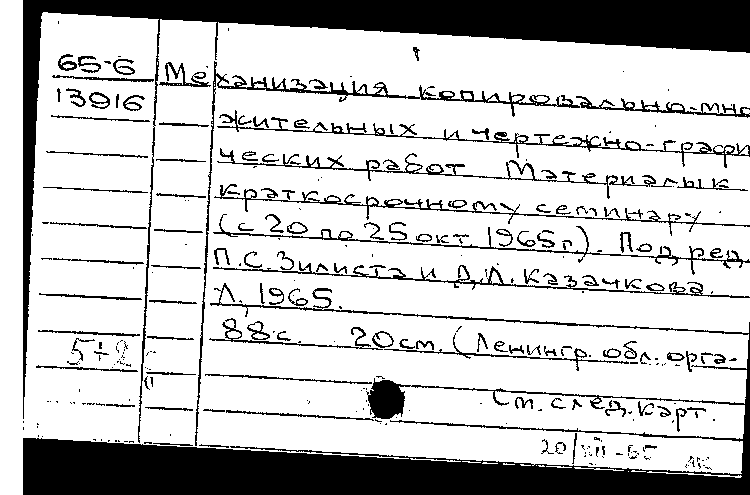 65-6 Механизация копировально-мно
13916 жительных и чертежно-графи
ческих работ Материалы к
краткосрочному семинару
(с 20 по 25 окт. 1965г.). Под ред.
П.С. Зилиста и Д.Л. Казачкова.
Л., 1965.
88с. 20см. (Ленингр. обл. орга-
5+2
См. след. карт.
20/XII-65